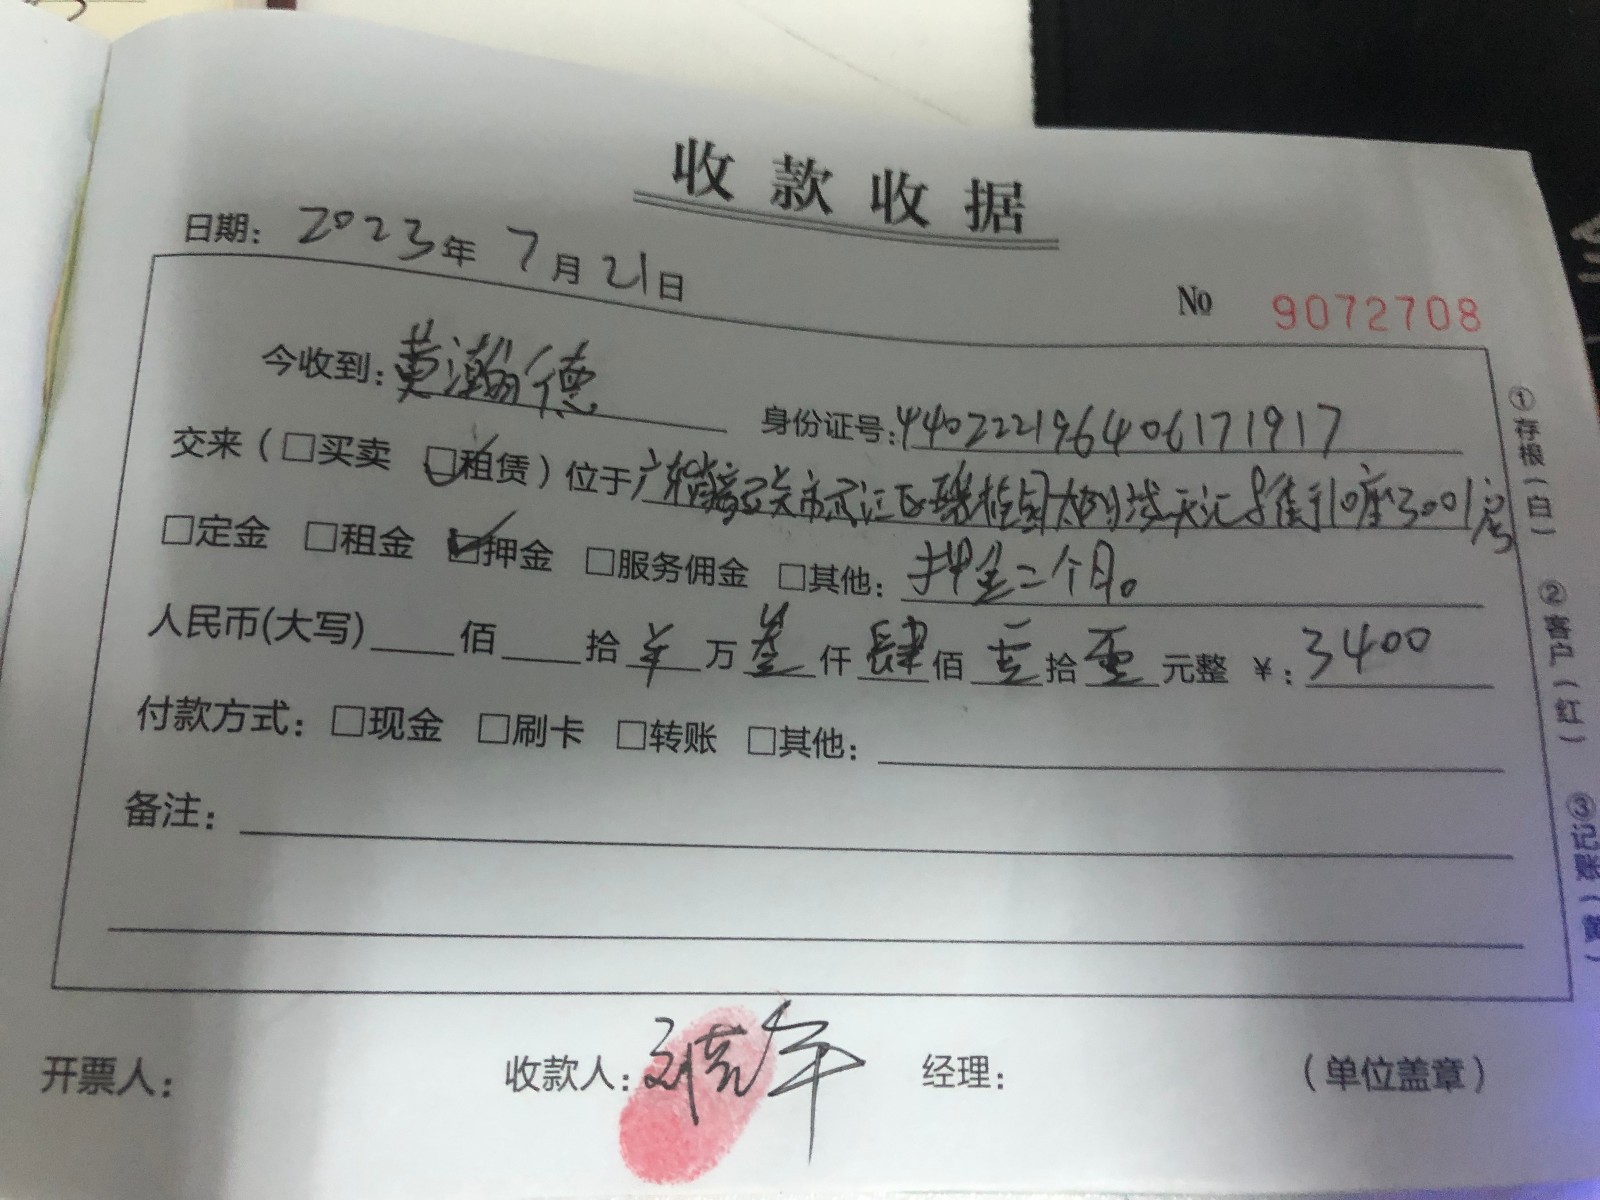 收款收据
日期: 2023年7月21日
No 9072708
今收到: 黄瀚德 身份证号: 440222196406171917
交来(□买卖 ☑租赁)位于广东省韶关市武江区碧桂园太阳城天汇8街10座3001房
□定金 □租金 ☑押金 □服务佣金 □其他: 押金二个月。
人民币(大写) 佰 拾 ¥ 万 叁 仟 肆 佰 零 拾 零 元整 ¥: 3400
付款方式: □现金 □刷卡 □转账 □其他:
备注:
开票人: 收款人: 经理: (单位盖章)
①存根(白) ②客户(红) ③记账(黄)